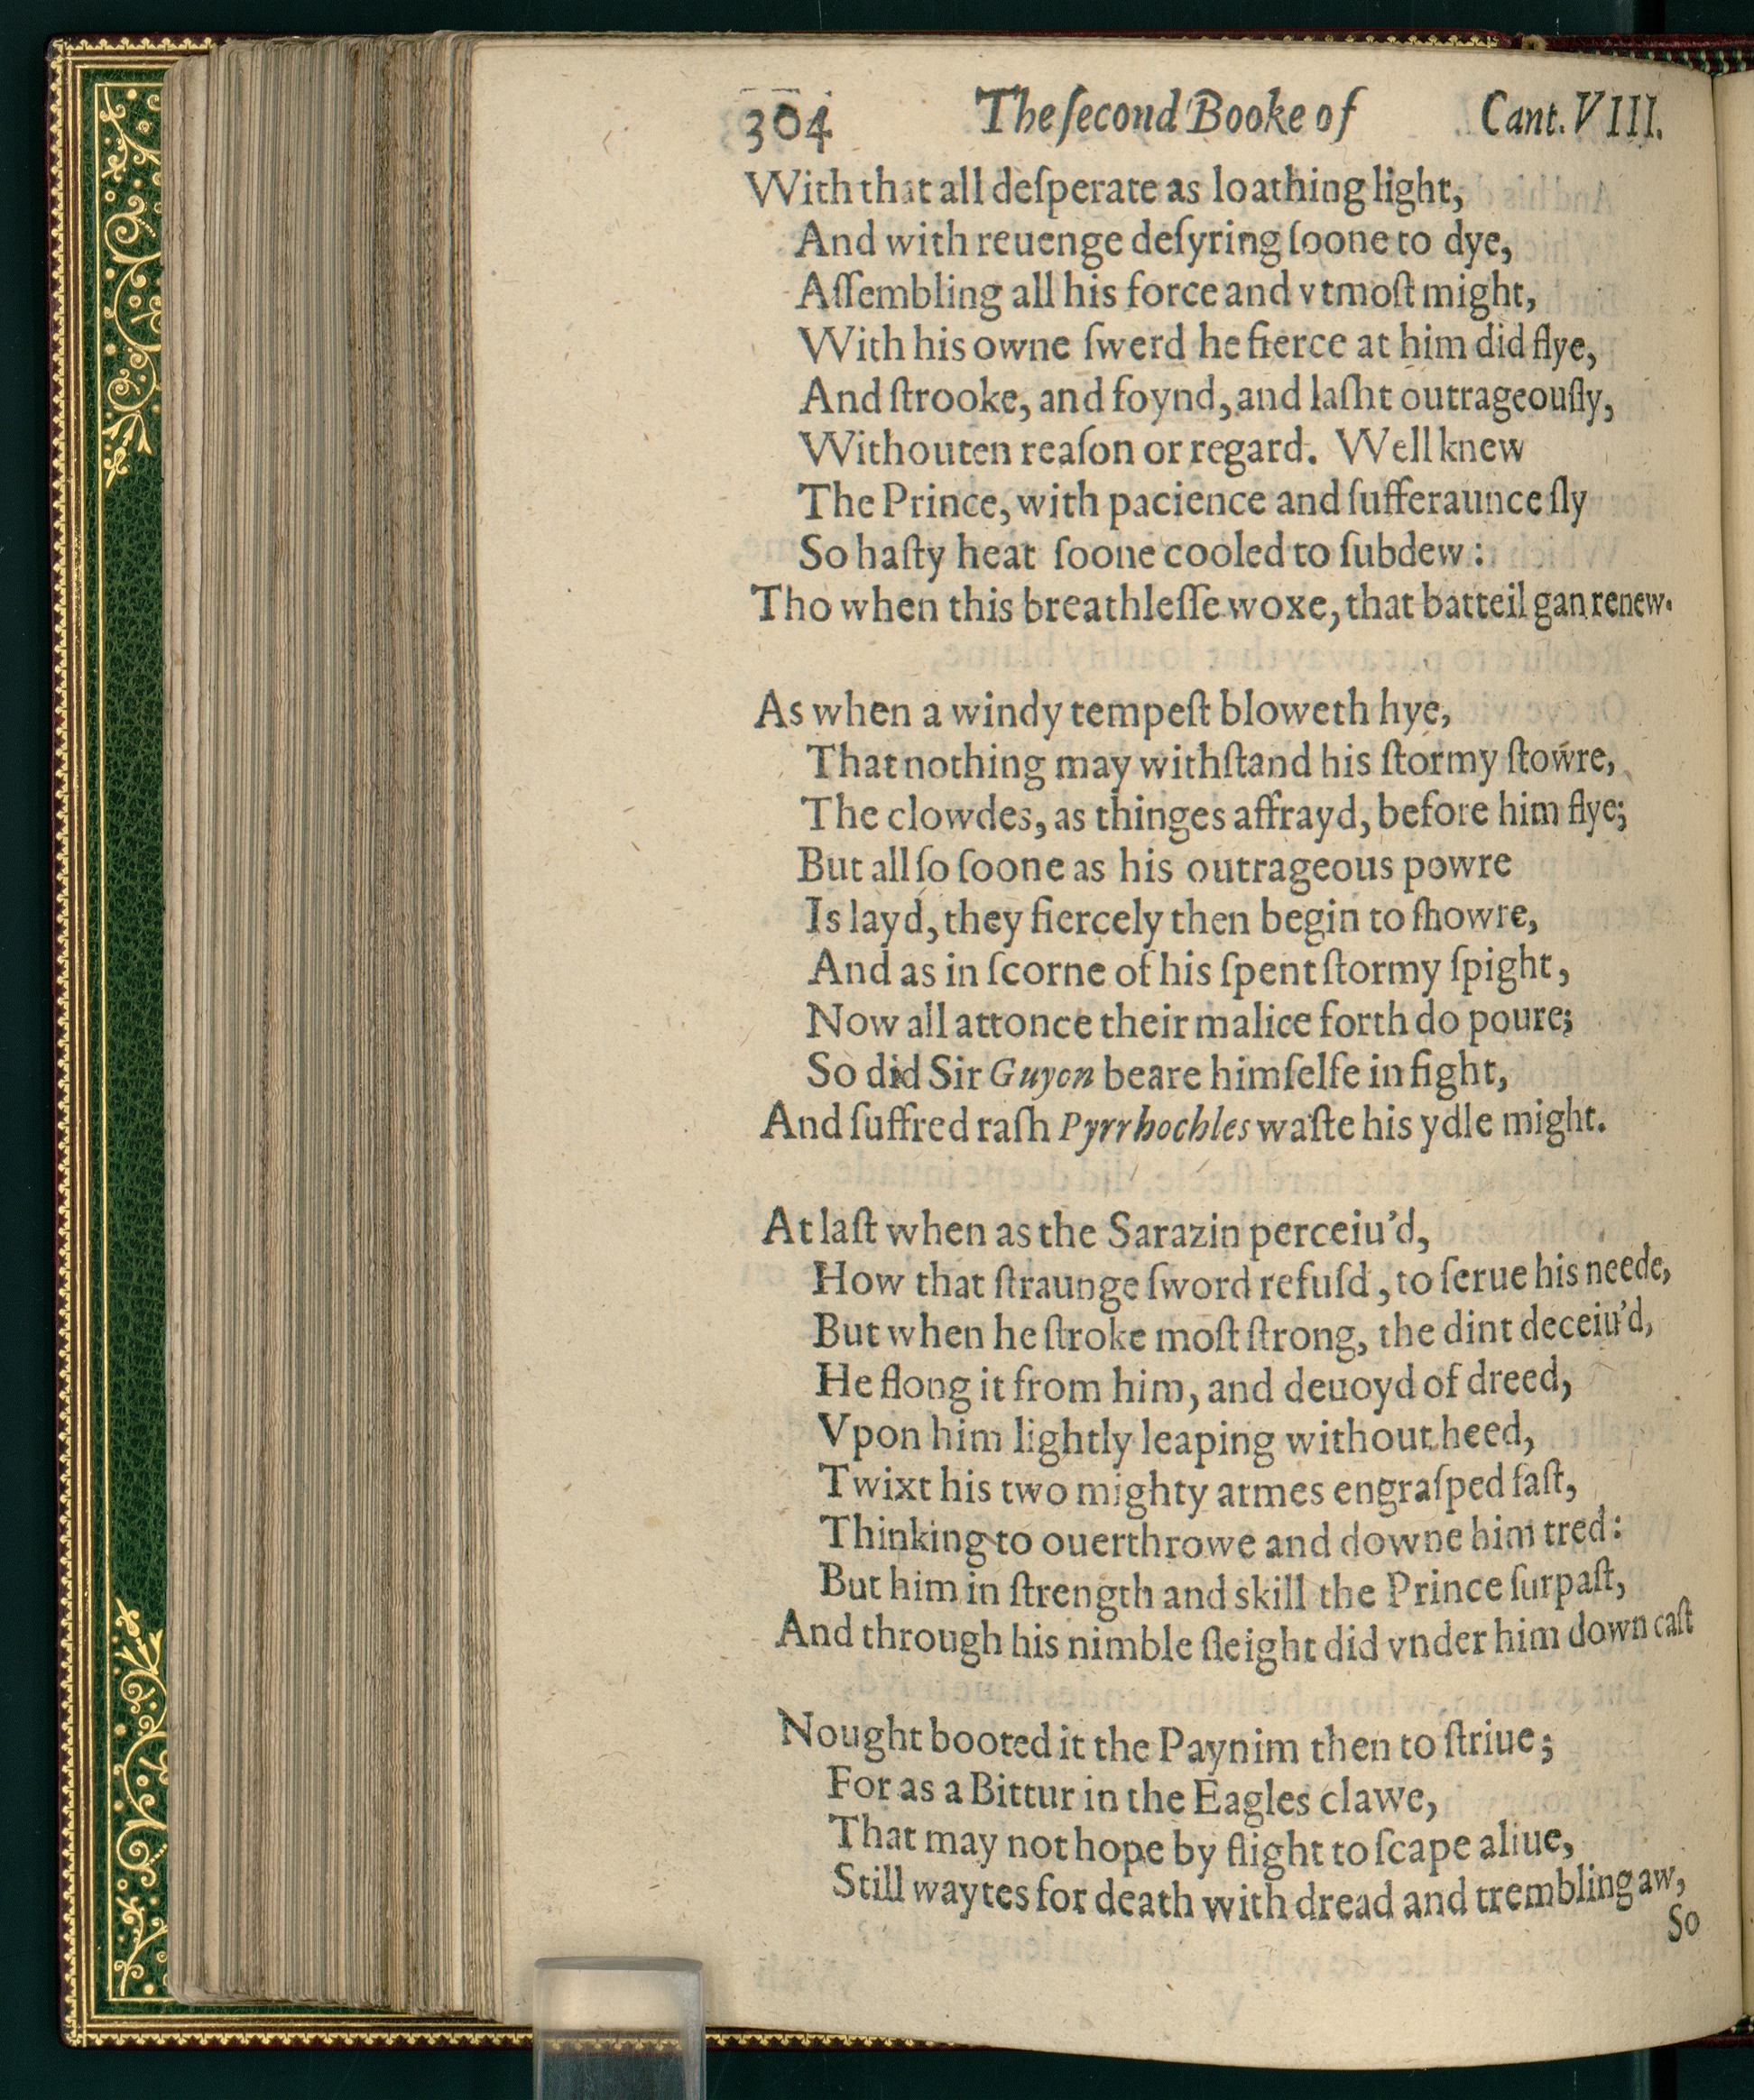 304 The ſecond Booke of Cant. VIII.
With that all deſperate as loathing light,
And with reuenge deſyring ſoone to dye,
Aſſembling all his force and vtmoſt might,
With his owne ſwerd he fierce at him did flye,
And ſtrooke, and foynd, and laſht outrageouſly,
Withouten reaſon or regard. Well knew
The Prince, with pacience and ſufferaunce ſly
So haſty heat ſoone cooled to ſubdew:
Tho when this breathleſſe woxe, that batteil gan renew.
As when a windy tempeſt bloweth hye,
That nothing may withſtand his ſtormy ſtowre,
The clowdes, as thinges affrayd, before him flye;
But all ſo ſoone as his outrageous powre
Is layd, they fiercely then begin to ſhowre,
And as in ſcorne of his ſpent ſtormy ſpight,
Now all attonce their malice forth do poure;
So did Sir Guyon beare himſelfe in fight,
And ſuffred raſh Pyrrhochles waſte his ydle might.
At laſt when as the Sarazin perceiu'd,
How that ſtraunge ſword refuſd, to ſerue his neede,
But when he ſtroke moſt ſtrong, the dint deceiu'd,
He flong it from him, and deuoyd of dreed,
Vpon him lightly leaping without heed,
Twixt his two mighty armes engraſped faſt,
Thinking to ouerthrowe and downe him tred:
But him in ſtrength and skill the Prince ſurpaſt,
And through his nimble ſleight did vnder him down caſt
Nought booted it the Paynim then to ſtriue;
For as a Bittur in the Eagles clawe,
That may not hope by flight to ſcape aliue,
Still waytes for death with dread and trembling aw,
So